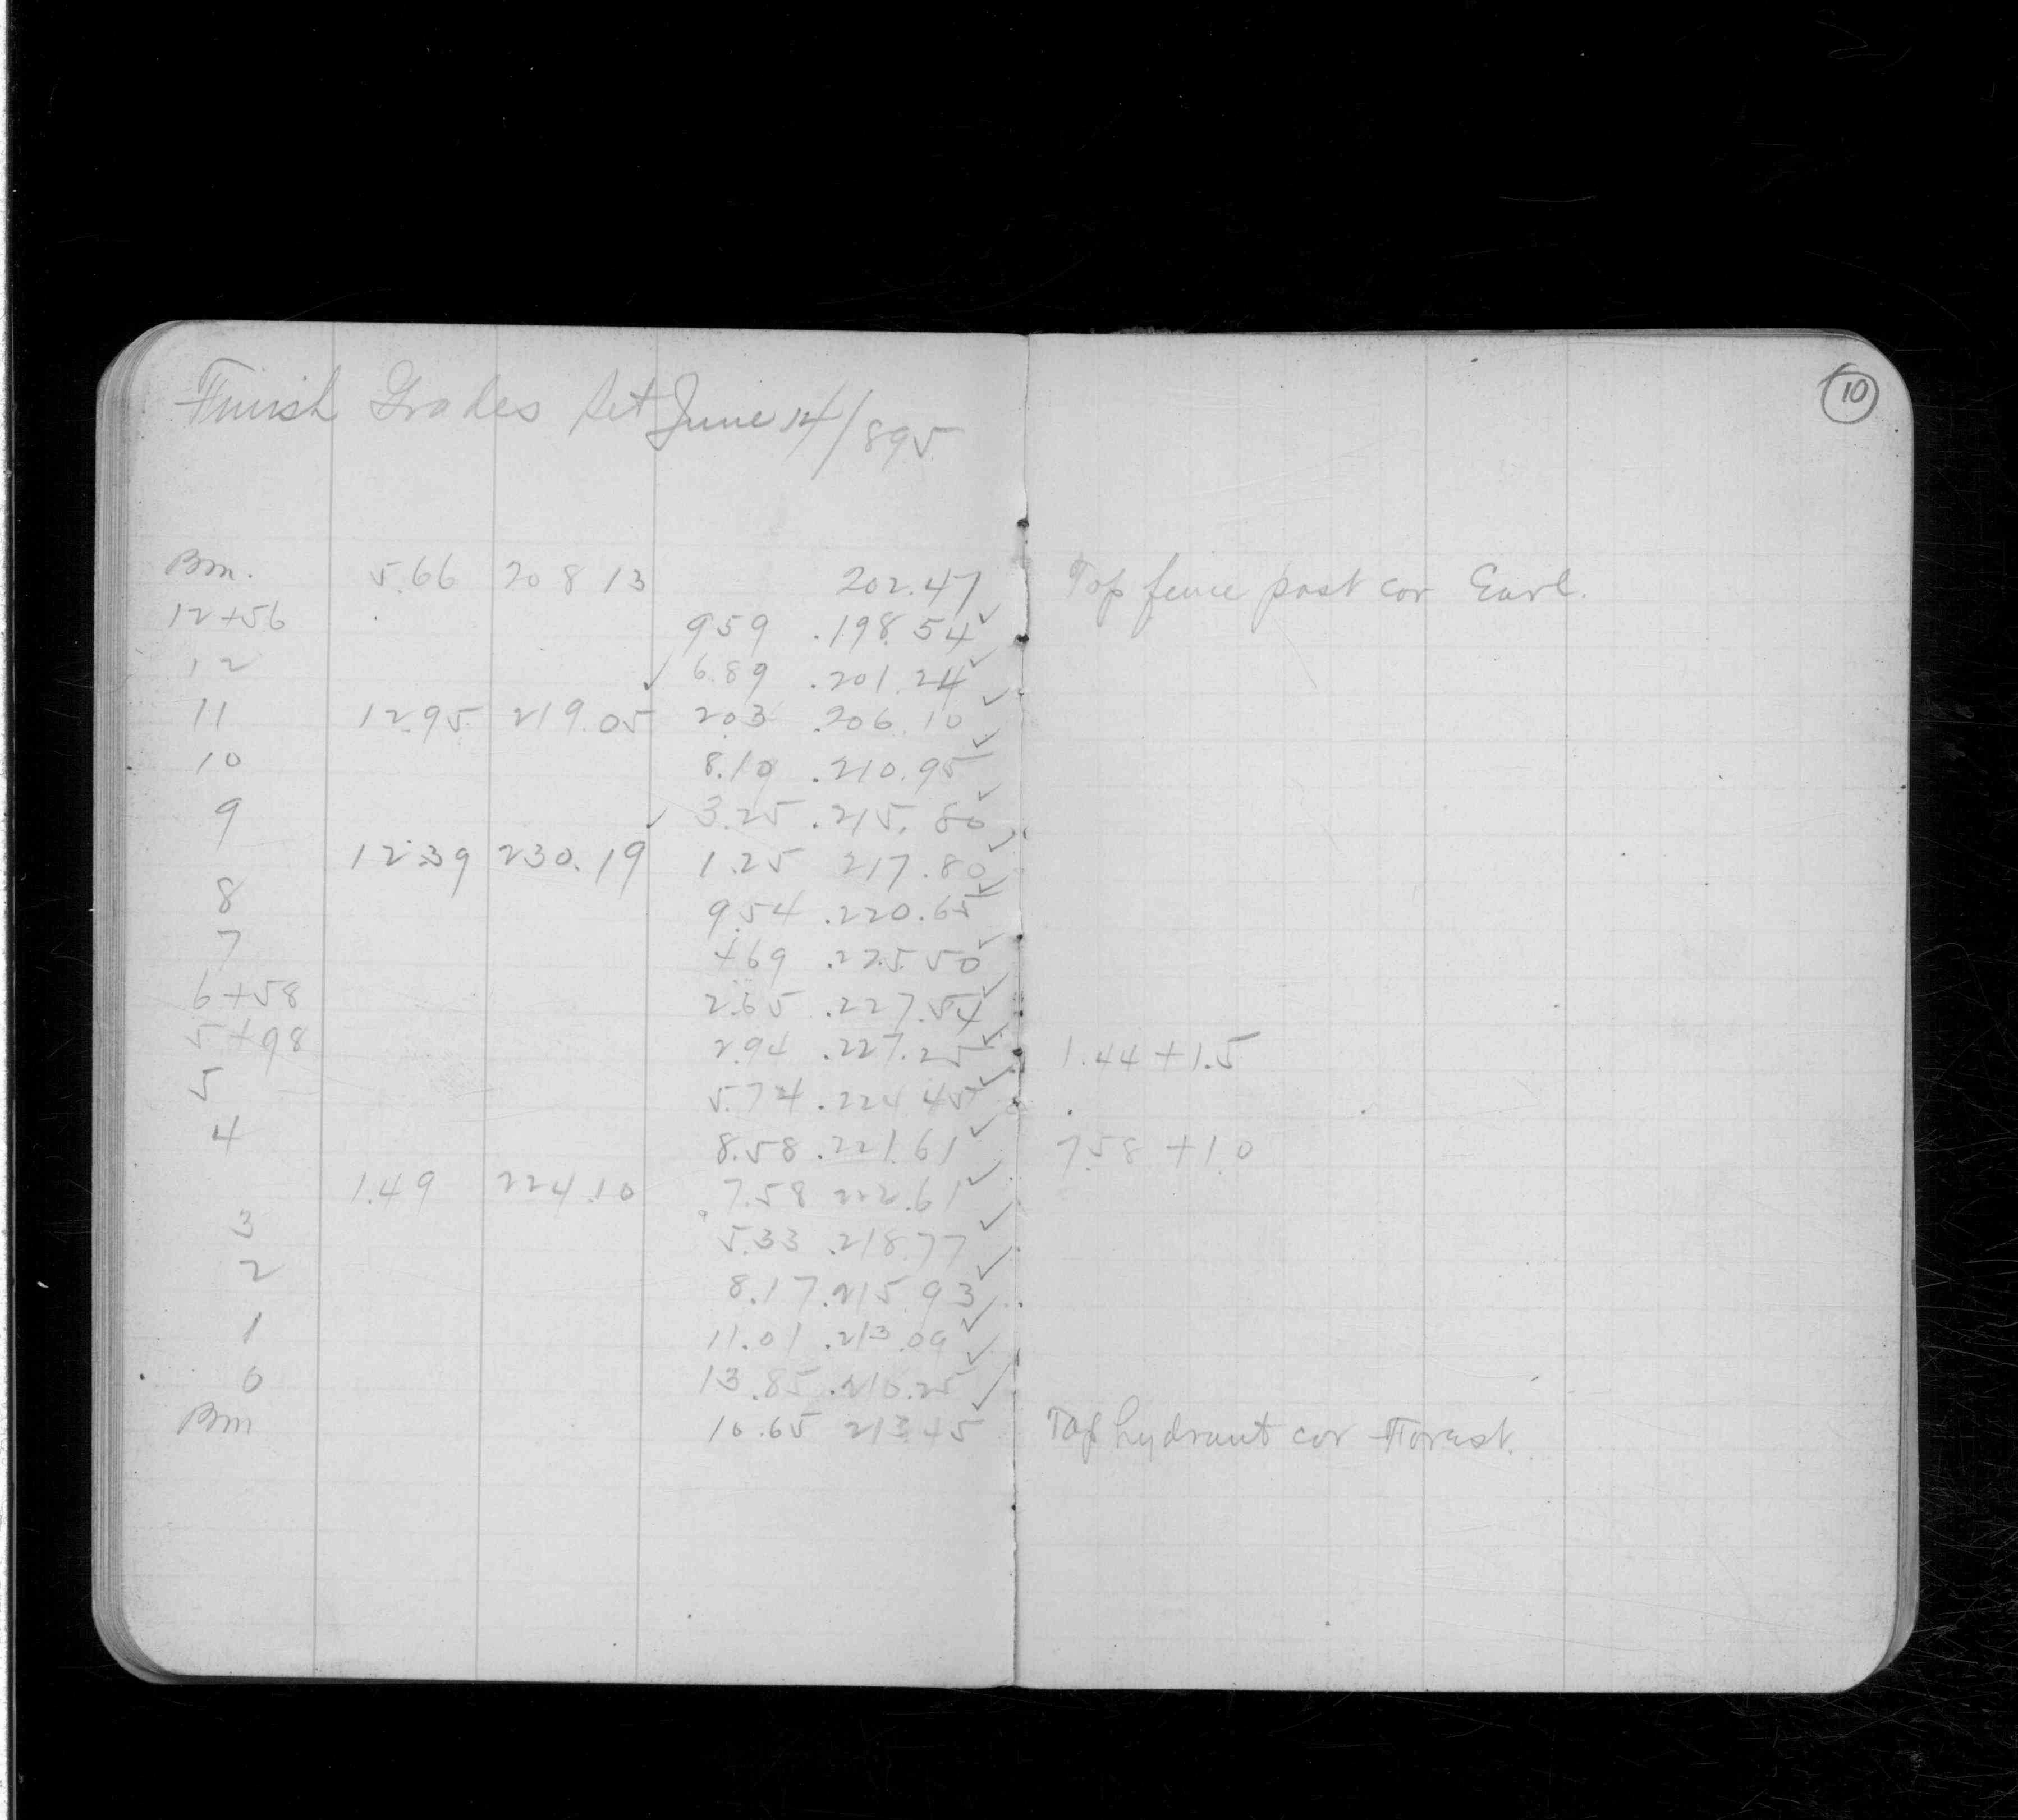 Finish Grades Set June 14/895
10
Bm. 5.66 208 13 202.47 Top fence post cor Earl.
12+56 959 .198.54 ✓
12 ✓ 6.89 .201.24 ✓
11 12.95 219.05 2.03 .206.10 ✓
10 8.10 .210.95 ✓
9 ✓ 3.25 .215.80 ✓
12.39 230.19 1.25 217.80 ✓
8 9.54 .220.65 ✓
7 469 .225.50 ✓
6+58 2.65 .227.54 ✓
5+98 2.94 .227.25 ✓ 1.44+1.5
5 5.74 .224 45 ✓
4 8.58 .221.61 ✓ 7.58 +1.0
1.49 224.10 7.58 222.61 ✓
3 5.33 .218.77 ✓
2 8.17 .215.93 ✓
1 11.01 .213.09 ✓
0 13.85 .210.25 ✓
Bm 10.65 213.45 ✓ Top hydrant cor Forest.